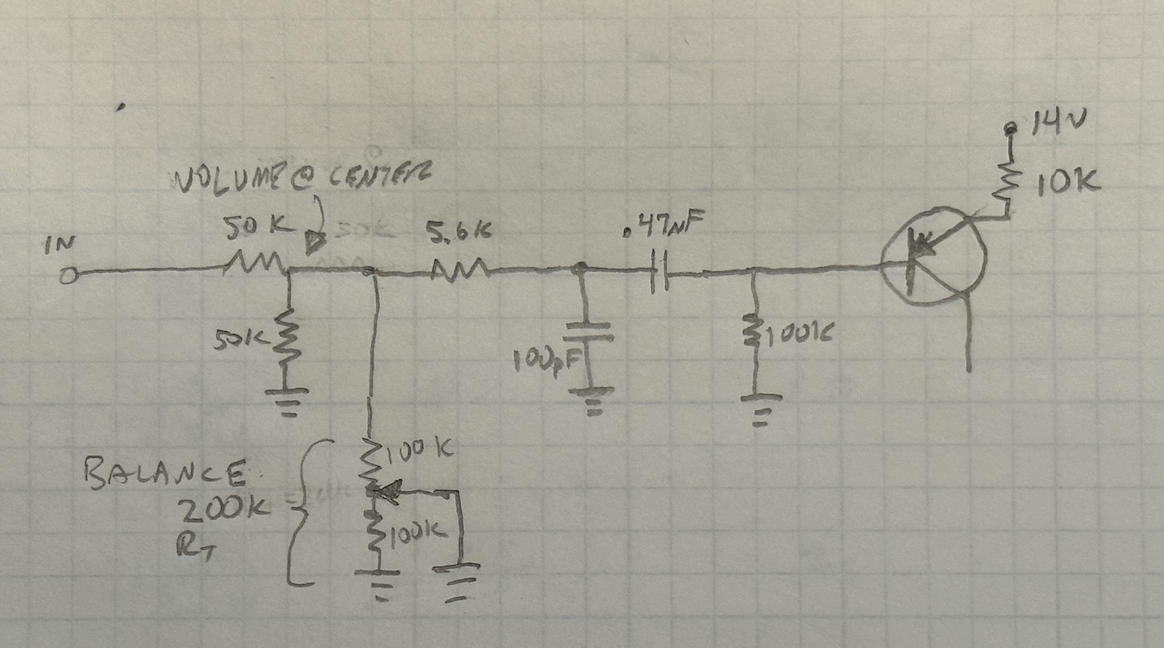 14V
10K
VOLUME @ CENTER
50K
50K
5.6K
.47nF
IN
50K
100pF
100K
BALANCE
200K
RT
100K
100K